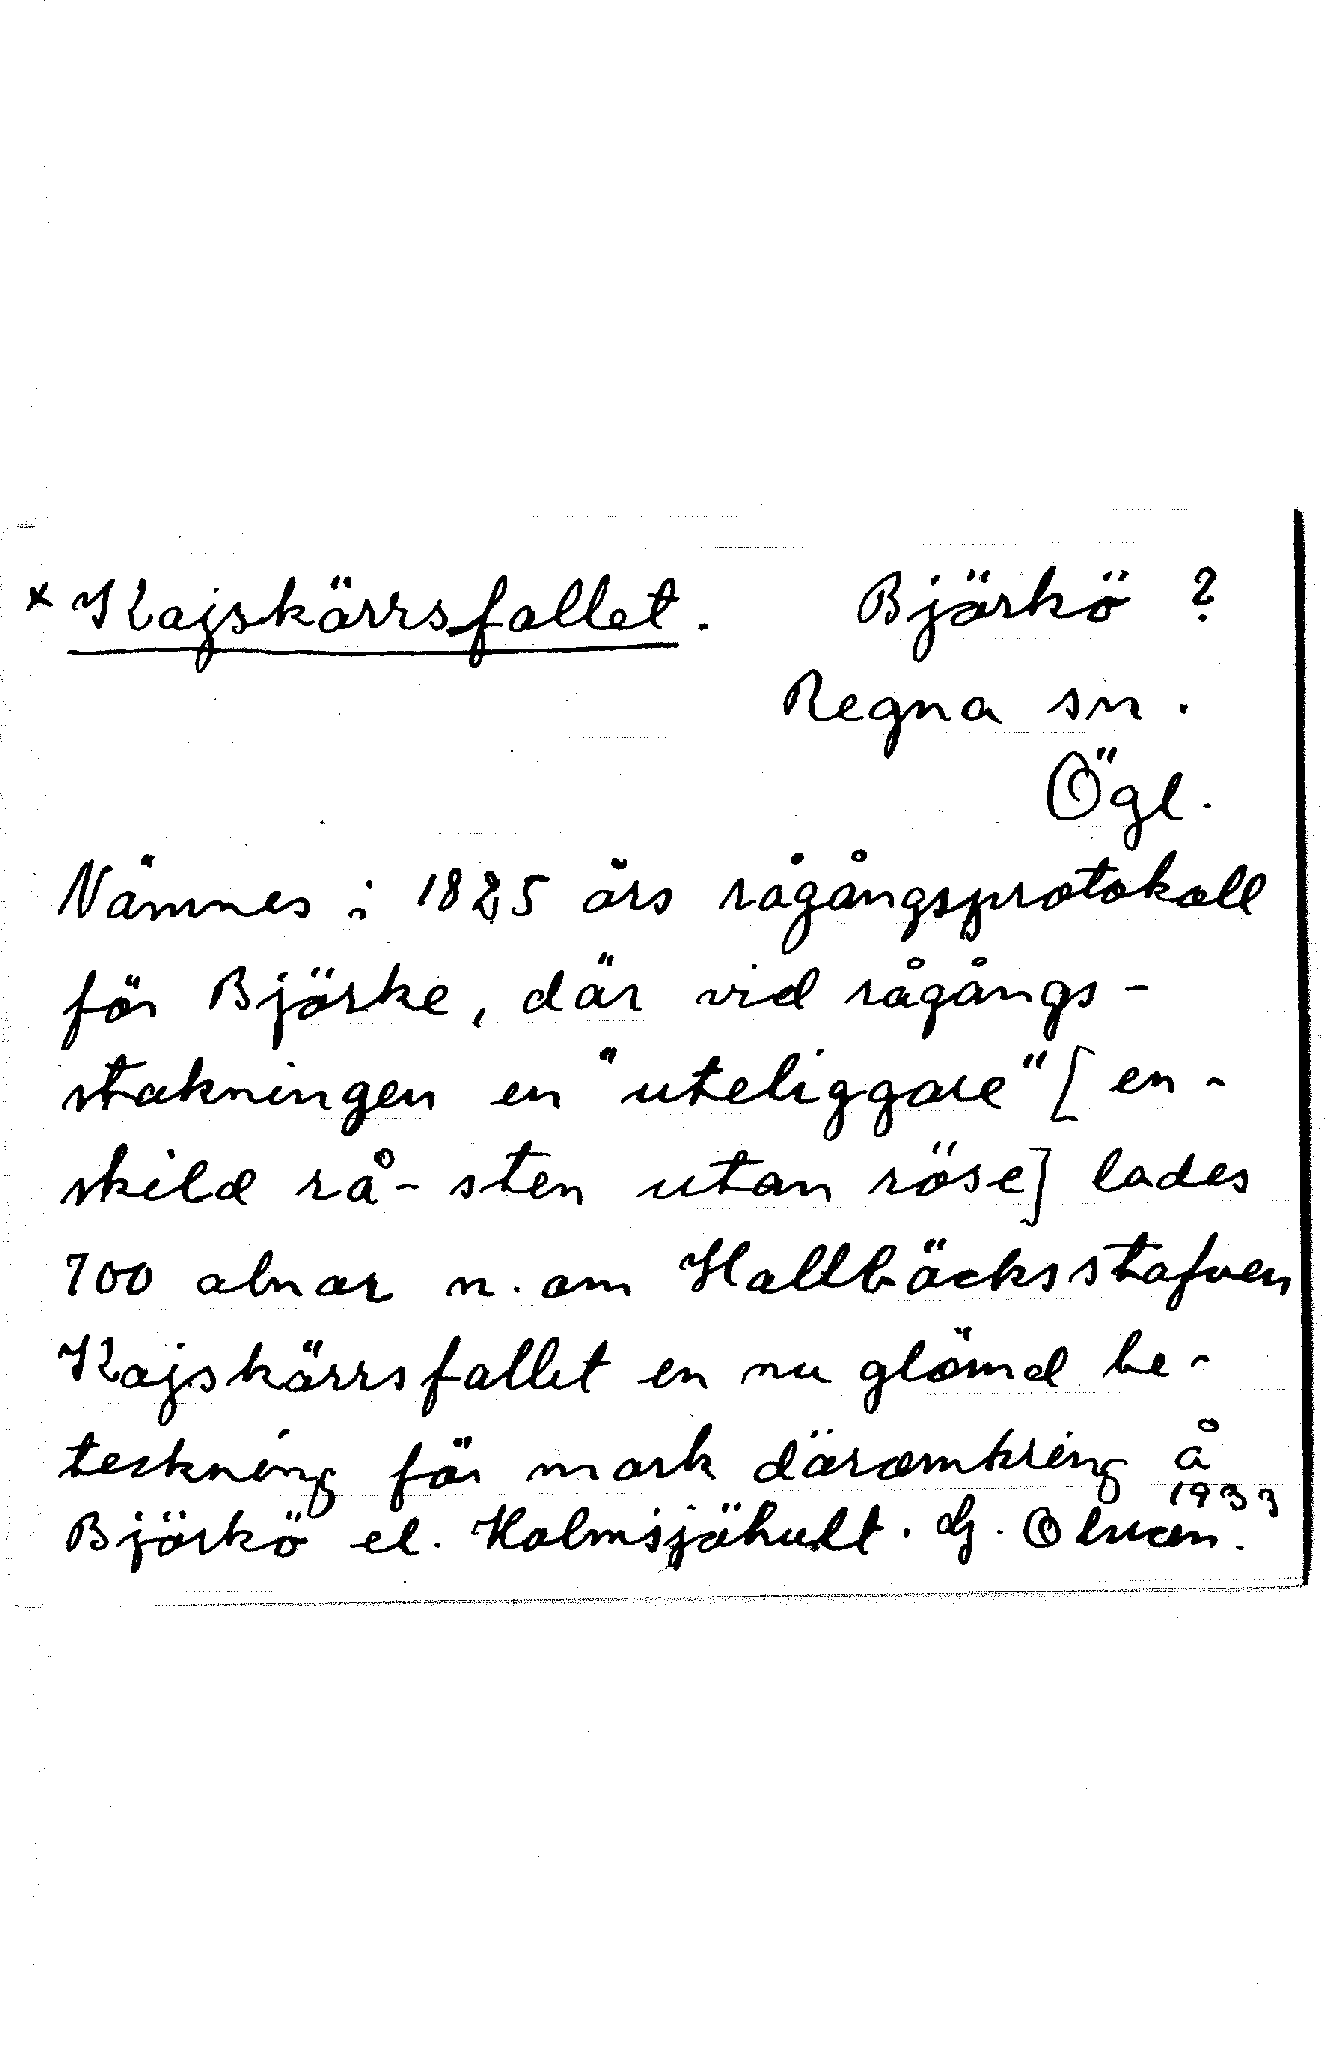 x Kajskärrsfallet. Björkö ?
Regna sn.
Ögl.
Nämnes i 1825 års rågångsprotokoll
för Björke, där vid rågångs-
stakningen en "uteliggare" [en-
skild rå-sten utan röse] lades
700 alnar n. om Hallbäcksstafven
Kajskärrsfallet en nu glömd be-
teckning för mark däromkring å
Björkö el. Holmsjöhult. G. Olsson.
1933